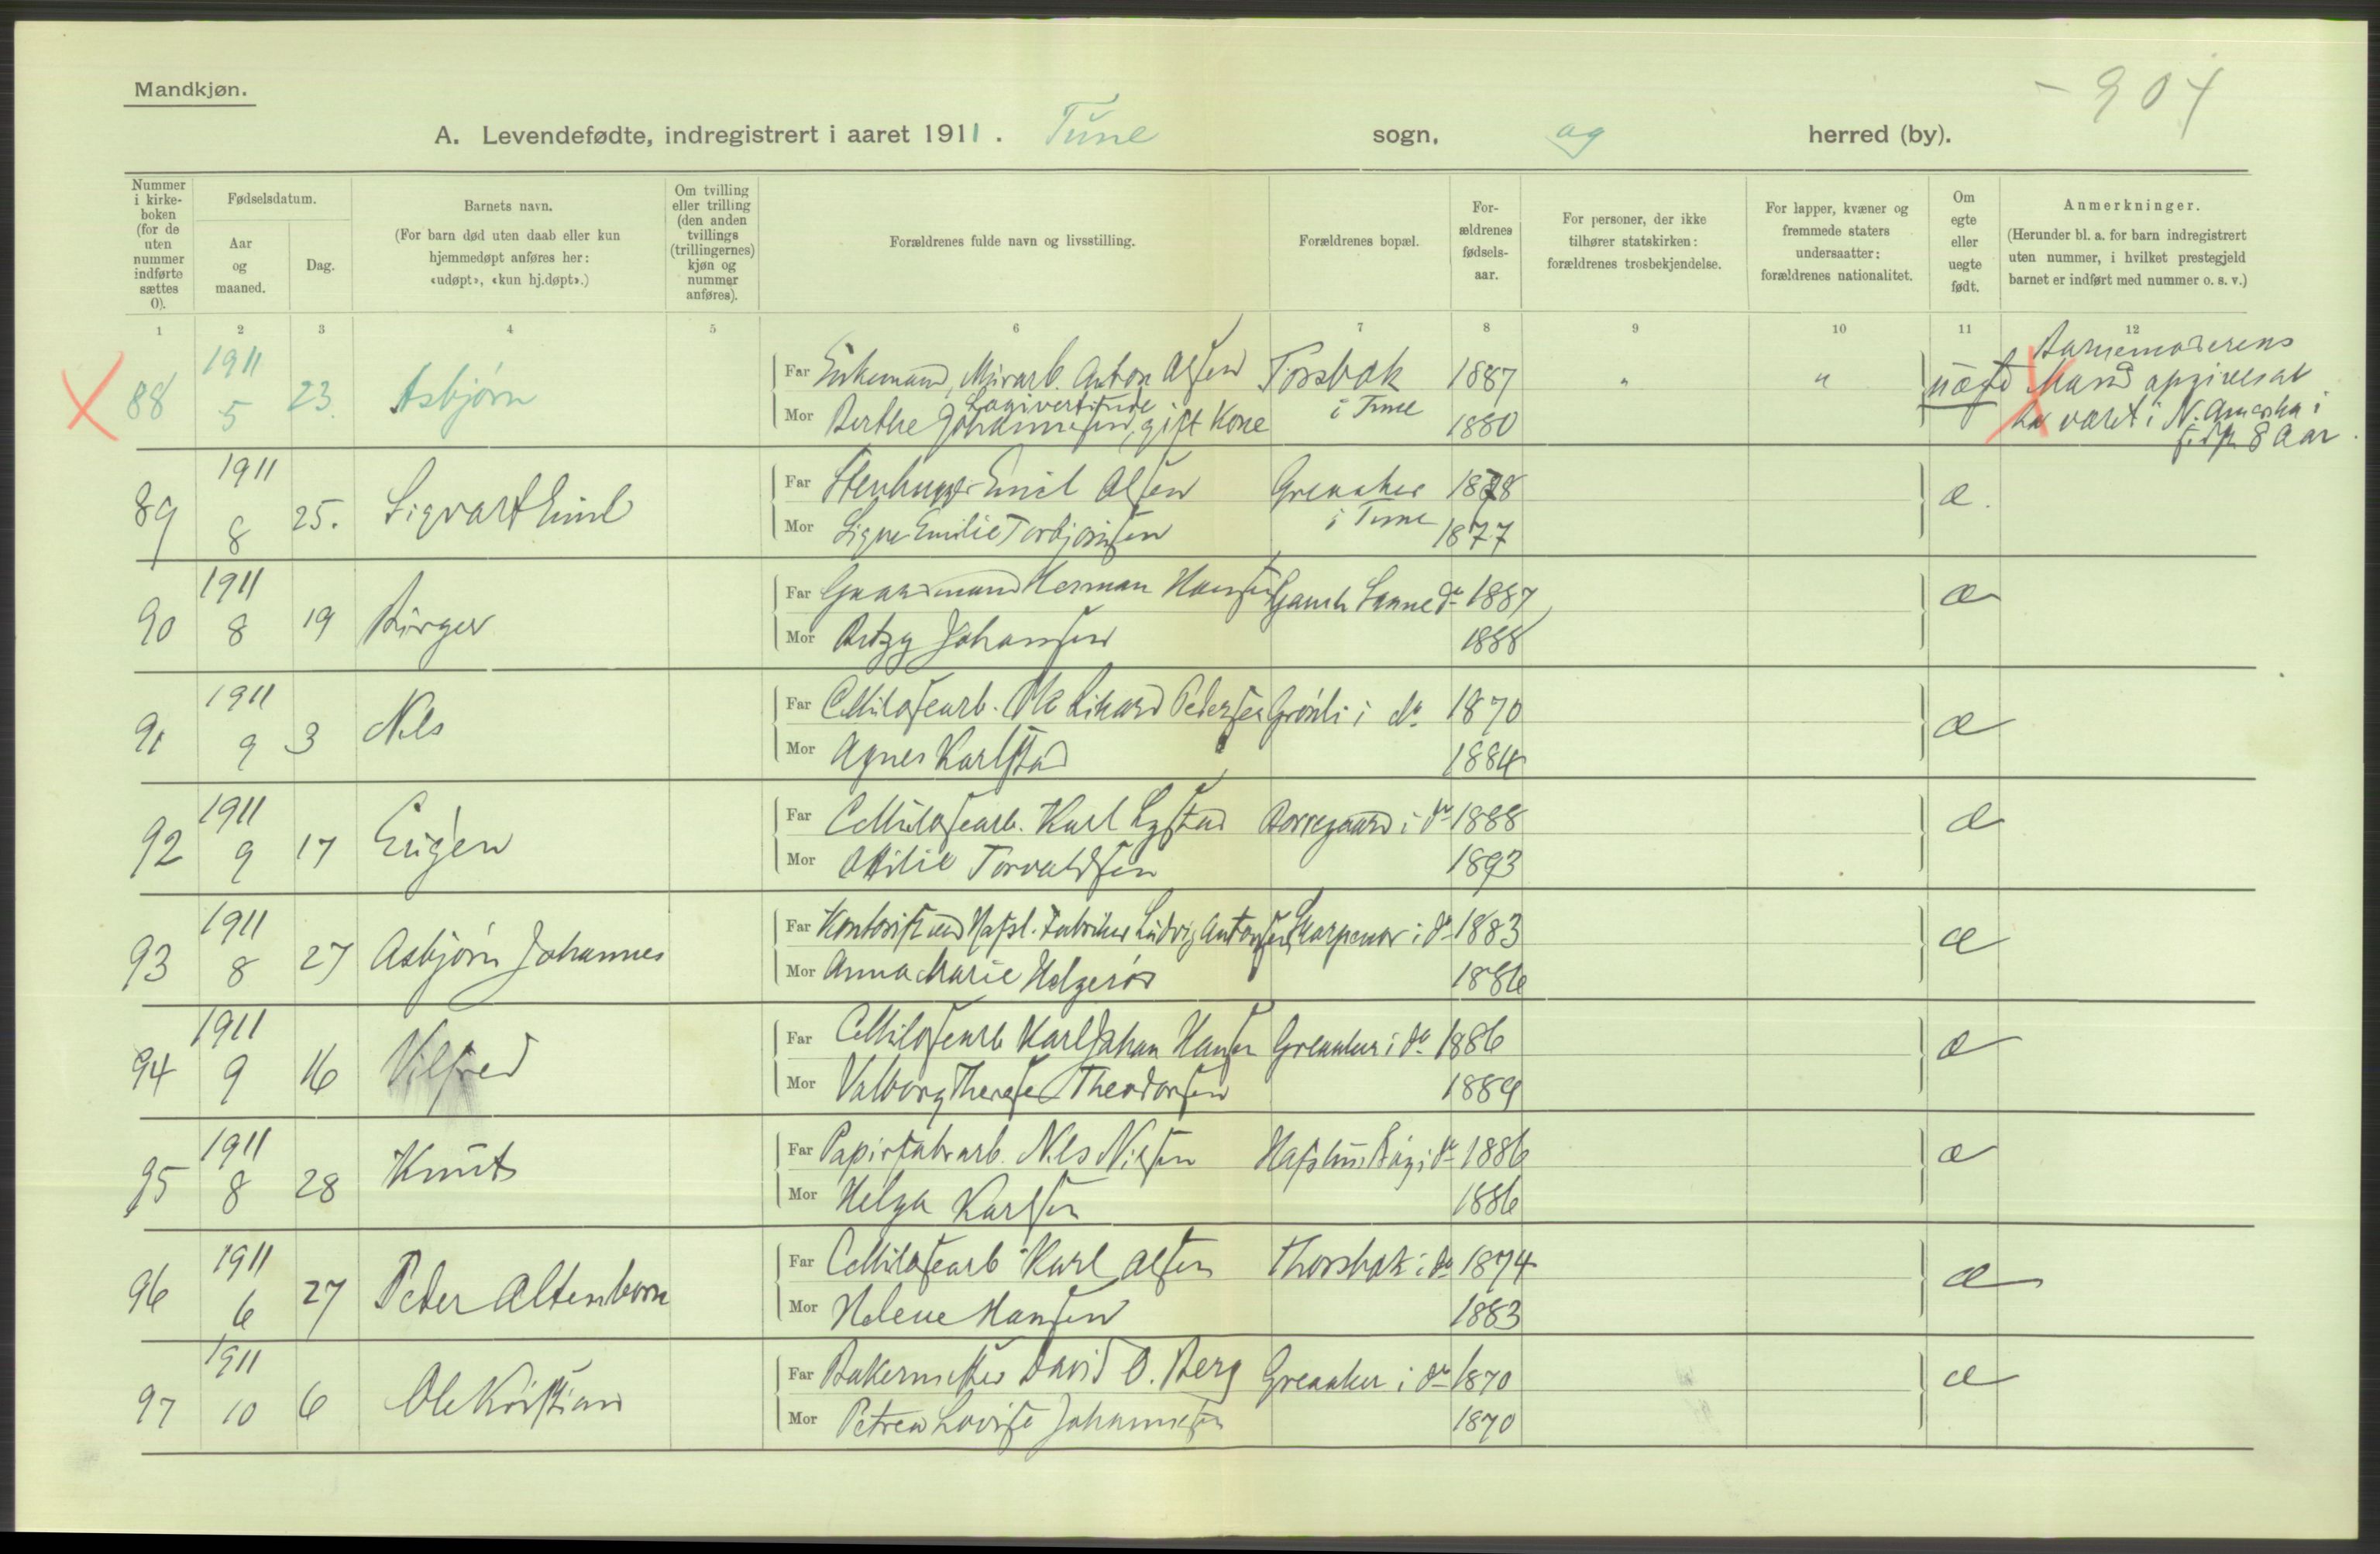 Mandkjøn.
- 904
A. Levendefødte, indregistrert i aaret 1911. Tune sogn, og herred (by).
Nummer i kirkeboken (for de uten nummer indførte sættes 0).
Fødselsdatum.
Aar og maaned.
Dag.
Barnets navn.
(For barn død uten daab eller kun hjemmedøpt anføres her: «udøpt», «kun hj.døpt».)
Om tvilling eller trilling (den anden tvillings (trillingernes) kjøn og nummer anføres).
Forældrenes fulde navn og livsstilling.
Forældrenes bopæl.
Forældrenes fødselsaar.
For personer, der ikke tilhører statskirken: forældrenes trosbekjendelse.
For lapper, kvæner og fremmede staters undersaatter: forældrenes nationalitet.
Om egte eller uegte født.
Anmerkninger.
(Herunder bl. a. for barn indregistrert uten nummer, i hvilket prestegjeld barnet er indført med nummer o. s. v.)
1 2 3 4 5 6 7 8 9 10 11 12
88 1911 5 23. Asbjørn
Far Enkemand, Murarb. Anton Olsen Torsbæk i Tune 1887 " " uægte
Mor Berthe Johannesen, gift Kone 1880
Barnemoderens Mand opgives at ha været i N. Amerika i 8 Aar.
89 1911 8 25. Sigvart Emil
Far Stenhugger Emil Olsen Greaaker i Tune 1878 æ.
Mor Signe Emilie Torbjørnsen 1877
90 1911 8 19 Birger
Far Gaardmand Herman Hansen do 1887 æ
Mor Betzy Johansen 1888
91 1911 9 3 Nils
Far Cellulosearb. Ole Rikard Petersen Grønli i do 1870 æ
Mor Agnes Karlstad 1884
92 1911 9 17 Eugen
Far Cellulosearb. Karl Rystad Borregaard i do 1888 æ
Mor Ottilie Torvaldsen 1893
93 1911 8 27 Asbjørn Johannes
Far Kontorist ved Hafsl. Fabriker Ludvig Antonsen Skarpenor i do 1883 æ
Mor Anna Marie Helgerød 1886
94 1911 9 16 Vilfred
Far Cellulosearb Karl Johan Hansen Greaaker i do 1886 æ
Mor Valborg Therese Theodorsen 1889
95 1911 8 28 Knut
Far Papirfabrarb. Nils Nilsen i do 1886 æ
Mor Helga Karlsen 1886
96 1911 6 27 Peder Altenborn
Far Cellulosearb Karl Olsen Thorsbæk i do 1874 æ
Mor Helene Hansen 1883
97 1911 10 6 Ole Kristian
Far Bakermester David O. Berg Greaaker i do 1870 æ
Mor Petrea Lovise Johannesen 1870